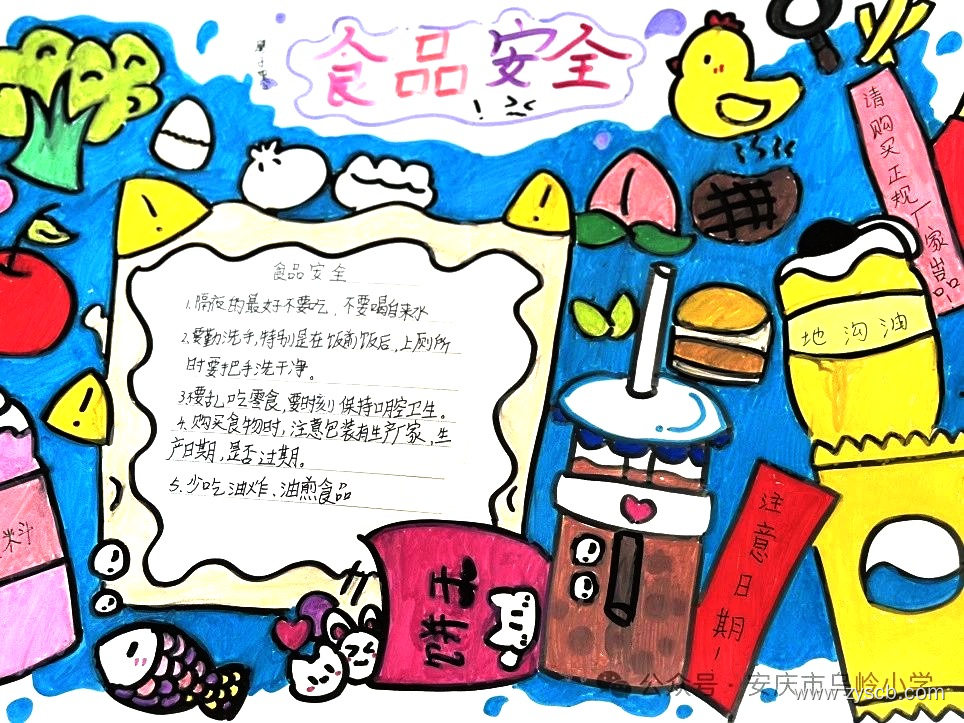 食品安全!
请购买正规厂家出品
地沟油
食品安全
1.隔夜的最好不要吃，不要喝自来水
2.要勤洗手,特别是在饭前饭后,上厕所
时要把手洗干净。
3.不要乱吃零食,要时刻保持口腔卫生。
4.购买食物时,注意包装有生产厂家,生
产日期,是否过期。
5.少吃油炸、油煎食品
料
饼干
注意日期!
公众号·安庆市乌岭小学
www.zyscb.com